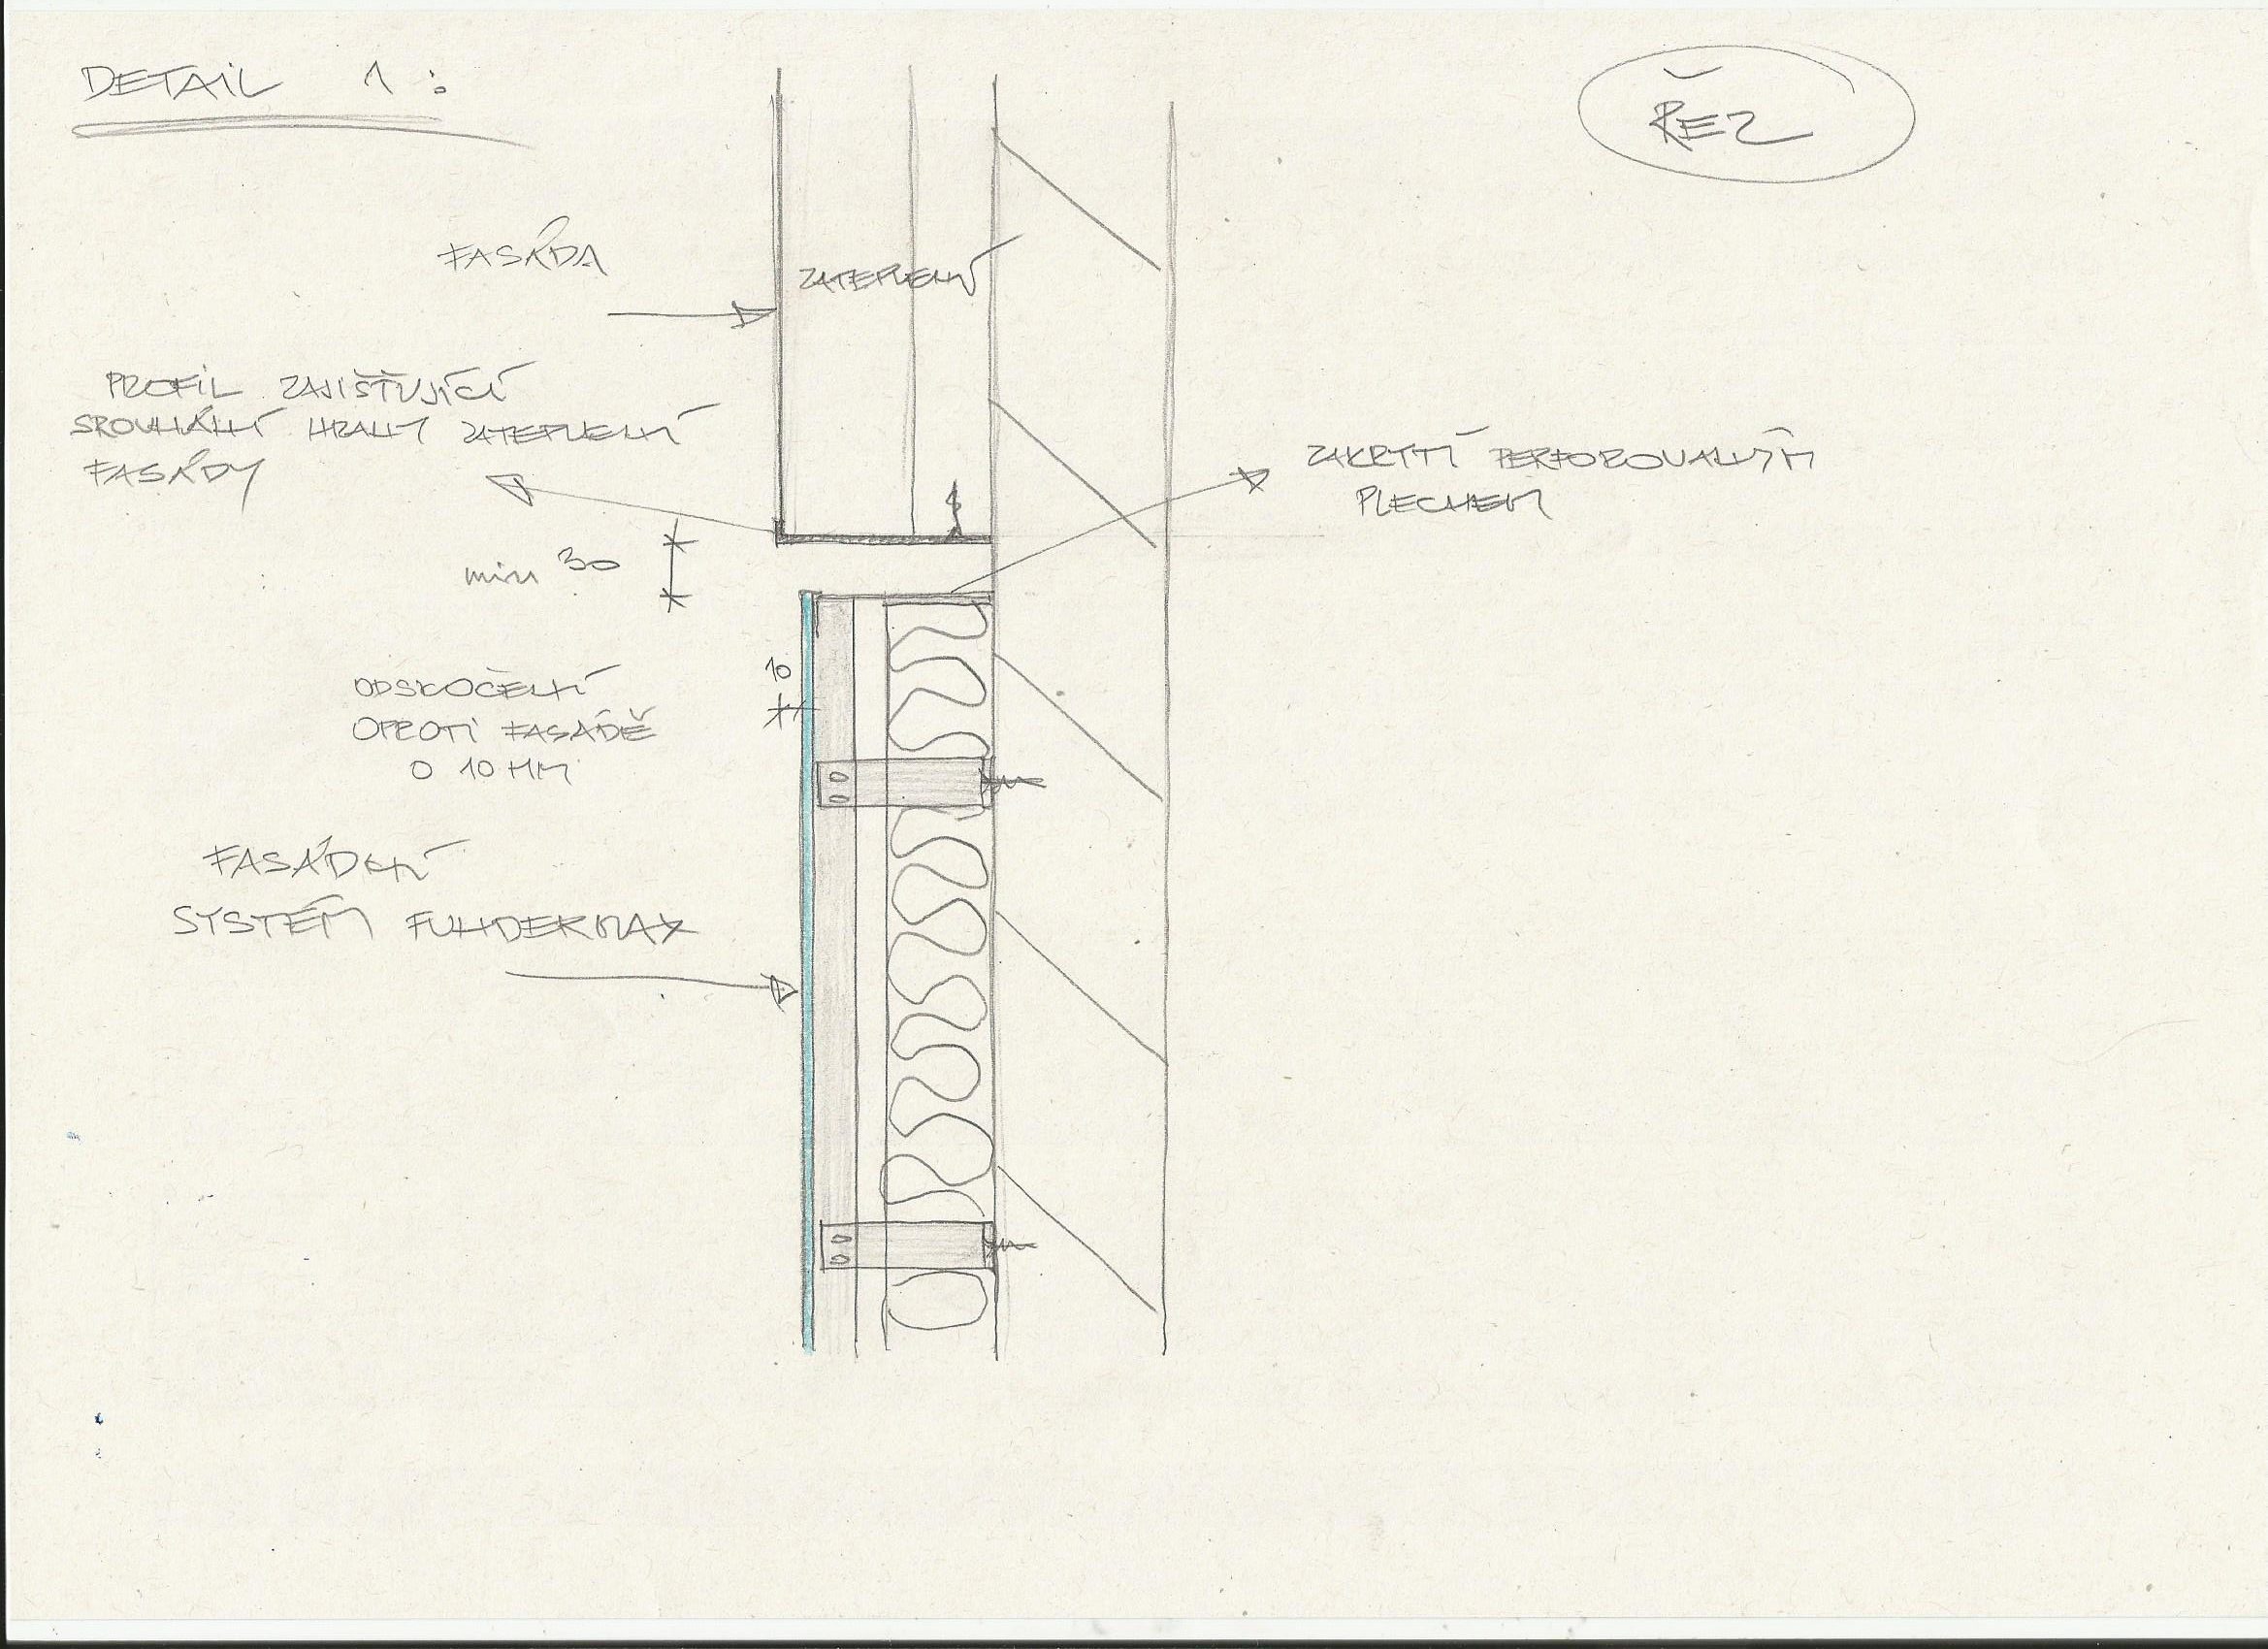 DETAIL 1:
ŘEZ
FASÁDA
ZATEPLENÍ
PROFIL ZAJIŠŤUJÍCÍ
SROVNÁNÍ HRANY ZATEPLENÍ
FASÁDY
ZAKRYTÍ PERFOROVANÝM
PLECHEM
min 30
10
ODSKOČENÍ
OPROTI FASÁDĚ
O 10 MM
FASÁDNÍ
SYSTÉM FUNDERMAX